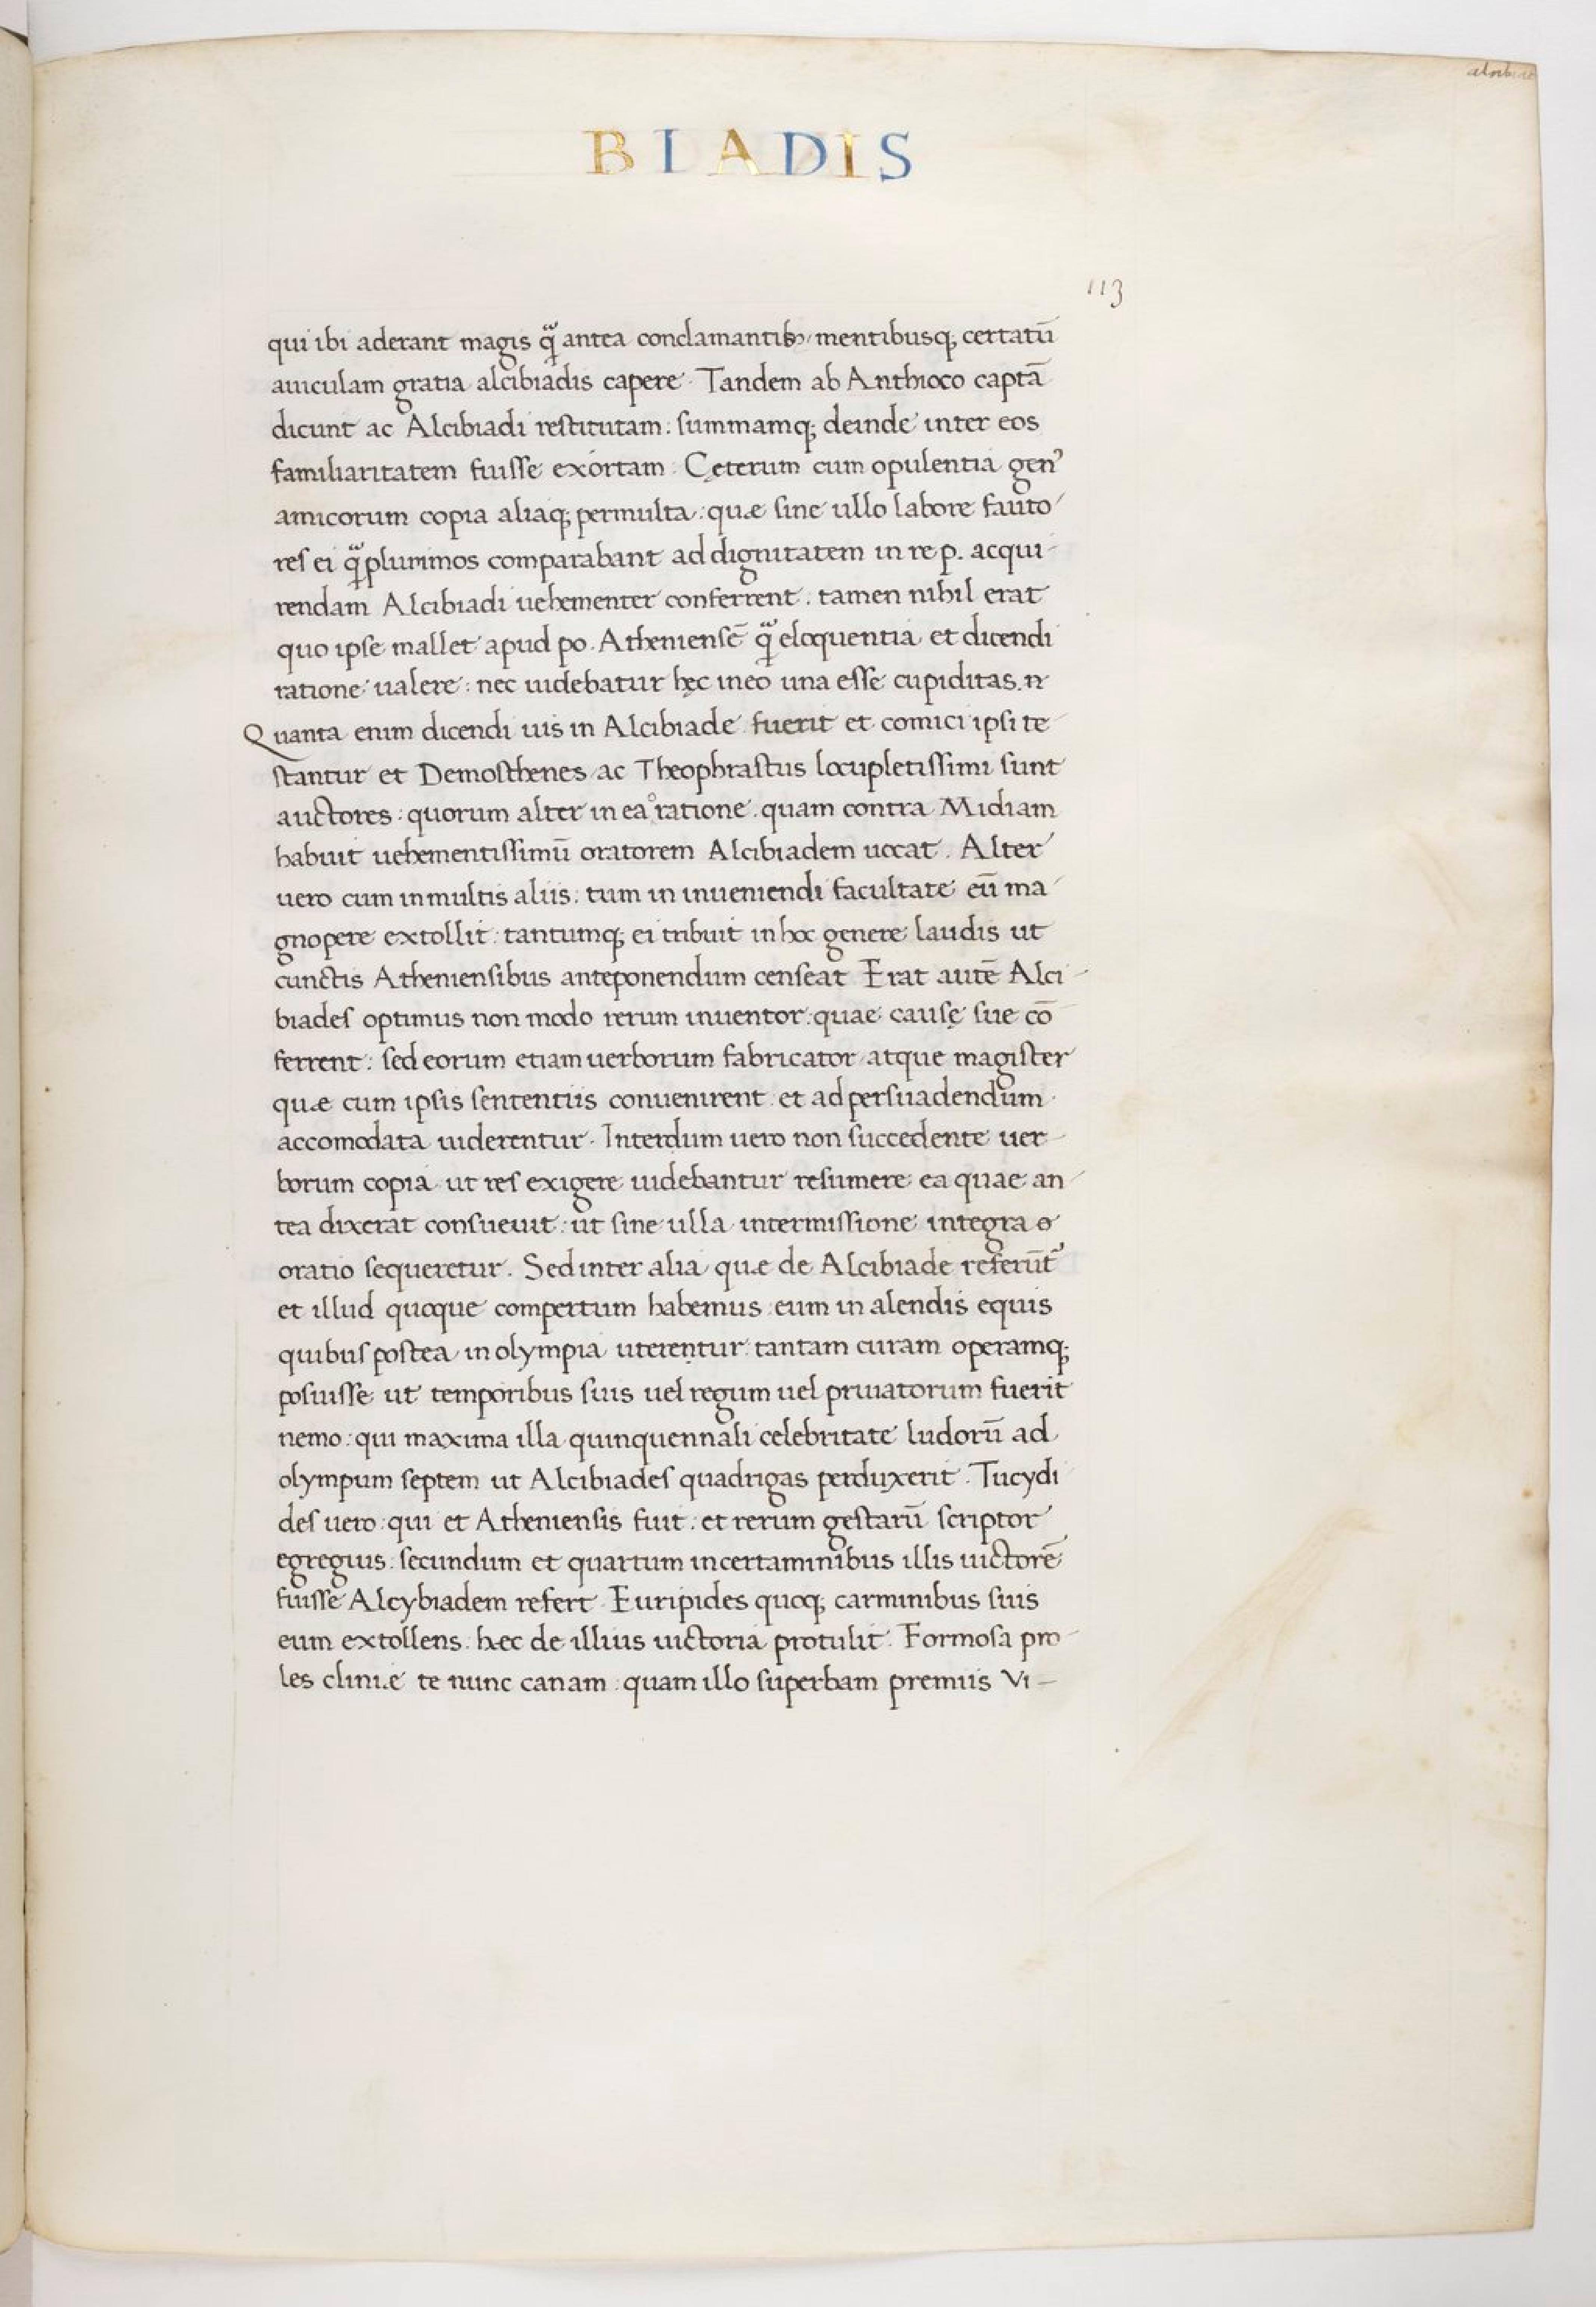 BIADIS
113
qui ibi aderant magis q̃ antea conclamantib; mentibusq; certatū
auiculam gratia alcibiadis capere. Tandem ab Anthioco captā
dicunt ac Alcibiadi restitutam: summamq; deinde inter eos
familiaritatem fuisse exortam. Cęterum cum opulentia gen᾽
amicorum copia aliaq; permulta: quæ sine ullo labore fauto
res ei q̃plurimos comparabant ad dignitatem in re p. acqui-
rendam Alcibiadi uehementer conferrent. tamen nihil erat
quo ipse mallet apud po. Atheniensē q̃ eloquentia et dicendi
ratione ualere: nec uidebatur hęc in eo una esse cupiditas.
Quanta enim dicendi uis in Alcibiade fuerit et comici ipsi te
stantur et Demosthenes ac Theophrastus locupletissimi sunt
auctores: quorum alter in ea°ratione quam contra Midiam
habuit uehementissimū oratorem Alcibiadem uocat. Alter
uero cum in multis aliis: tum in inueniendi facultate eū ma
gnopere extollit: tantumq; ei tribuit in hoc genere laudis ut
cunctis Atheniensibus anteponendum censeat Erat autē Alci-
biades optimus non modo rerum inuentor: quae causę sue cō
ferrent: sed eorum etiam uerborum fabricator atque magister
quæ cum ipsis sententiis conuenirent: et ad persuadendum
accomodata uiderentur. Interdum uero non succedente uer-
borum copia ut res exigere uidebantur resumere ea quae an-
tea dixerat consueuit: ut sine ulla intermissione integra o
oratio sequeretur. Sed inter alia quæ de Alcibiade referūt᾽
et illud quoque compertum habemus eum in alendis equis
quibus postea in olympia uterentur tantam curam operamq;
posuisse ut temporibus suis uel regum uel priuatorum fuerit
nemo: qui maxima illa quinquennali celebritate ludorū ad
olympum septem ut Alcibiades quadrigas perduxerit. Tucydi
des uero: qui et Atheniensis fuit: et rerum gestarū scriptor
egregius: secundum et quartum in certaminibus illis uictorē
fuisse Alcybiadem refert. Euripides quoq; carminibus suis
eum extollens. hæc de illius uictoria protulit. Formosa pro-
les cliniæ te nunc canam: quam illo superbam premiis Vi-